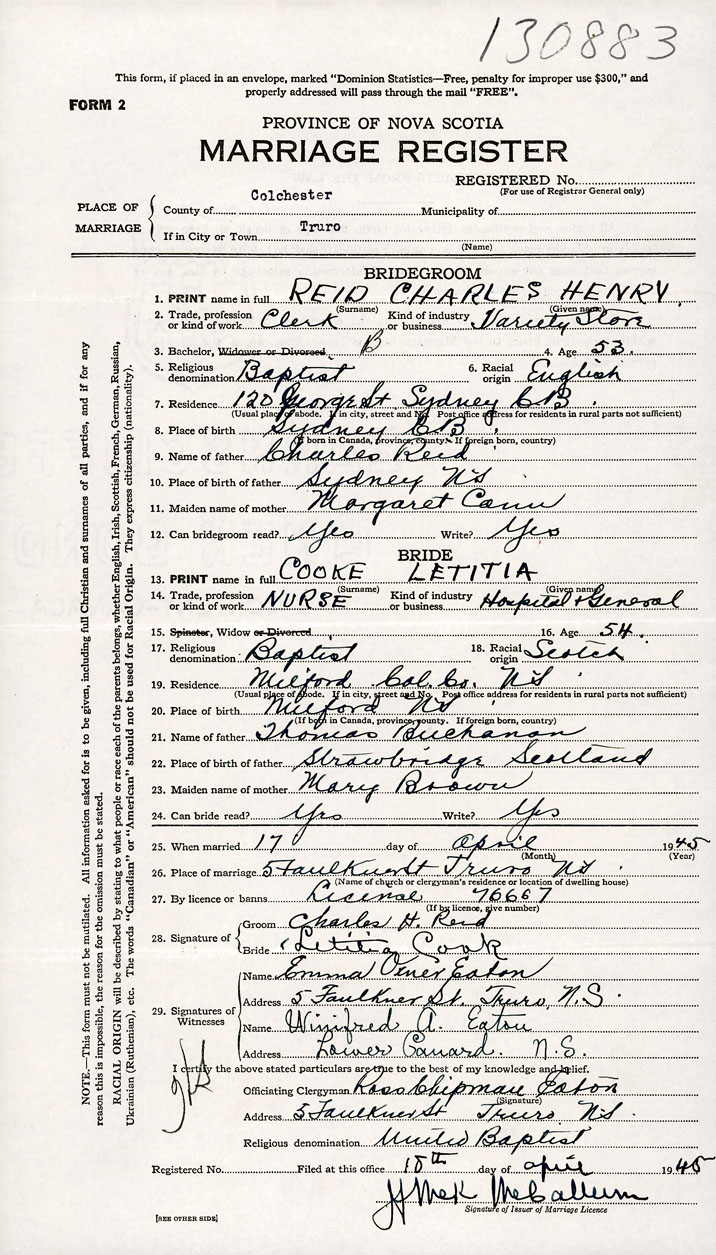 130883
This form, if placed in an envelope, marked "Dominion Statistics—Free, penalty for improper use $300," and
properly addressed will pass through the mail "FREE".
FORM 2
PROVINCE OF NOVA SCOTIA
MARRIAGE REGISTER
REGISTERED No.
(For use of Registrar General only)
PLACE OF MARRIAGE
County of Colchester Municipality of
If in City or Town Truro
(Name)
BRIDEGROOM
1. PRINT name in full REID CHARLES HENRY
(Surname) (Given name)
2. Trade, profession or kind of work Clerk Kind of industry or business Variety Store
3. Bachelor, Widower or Divorced B 4. Age 53.
5. Religious denomination Baptist 6. Racial origin English
7. Residence 120 George St Sydney CB.
(Usual place of abode. If in city, street and No. Post office address for residents in rural parts not sufficient)
8. Place of birth Sydney CB.
(If born in Canada, province, county. If foreign born, country)
9. Name of father Charles Reid
10. Place of birth of father Sydney NS
11. Maiden name of mother Margaret Cann
12. Can bridegroom read? Yes Write? Yes
BRIDE
13. PRINT name in full COOKE LETITIA
(Surname) (Given name)
14. Trade, profession or kind of work NURSE Kind of industry or business Hospital & General
15. Spinster, Widow or Divorced 16. Age 54.
17. Religious denomination Baptist 18. Racial origin Scotch
19. Residence Milford Col. Co. NS
(Usual place of abode. If in city, street and No. Post office address for residents in rural parts not sufficient)
20. Place of birth Milford NS
(If born in Canada, province, county. If foreign born, country)
21. Name of father Thomas Buchanan
22. Place of birth of father Strawbridge Scotland
23. Maiden name of mother Mary Brown
24. Can bride read? Yes Write? Yes
25. When married 17 day of April 1945
(Month) (Year)
26. Place of marriage 5 Faulkner St Truro NS.
(Name of church or clergyman's residence or location of dwelling house)
27. By licence or banns License 76667
(If by licence, give number)
28. Signature of
Groom Charles H. Reid
Bride Letitia Cook
29. Signatures of Witnesses
Name Emma Eaton
Address 5 Faulkner St. Truro, N.S.
Name Winifred A. Eaton
Address Lower Canard. N.S.
I certify the above stated particulars are true to the best of my knowledge and belief.
Officiating Clergyman Ross Chipman Eaton
(Signature)
Address 5 Faulkner St Truro NS.
Religious denomination United Baptist
Registered No. Filed at this office 18th day of April 1945
McCallum
Signature of Issuer of Marriage Licence
[SEE OTHER SIDE]
NOTE.—This form must not be mutilated. All information asked for is to be given, including full Christian and surnames of all parties, and if for any
reason this is impossible, the reason for the omission must be stated.
RACIAL ORIGIN will be described by stating to what people or race each of the parents belongs, whether English, Irish, Scottish, French, German, Russian,
Ukrainian (Ruthenian), etc. The words "Canadian" or "American" should not be used for Racial Origin. They express citizenship (nationality).